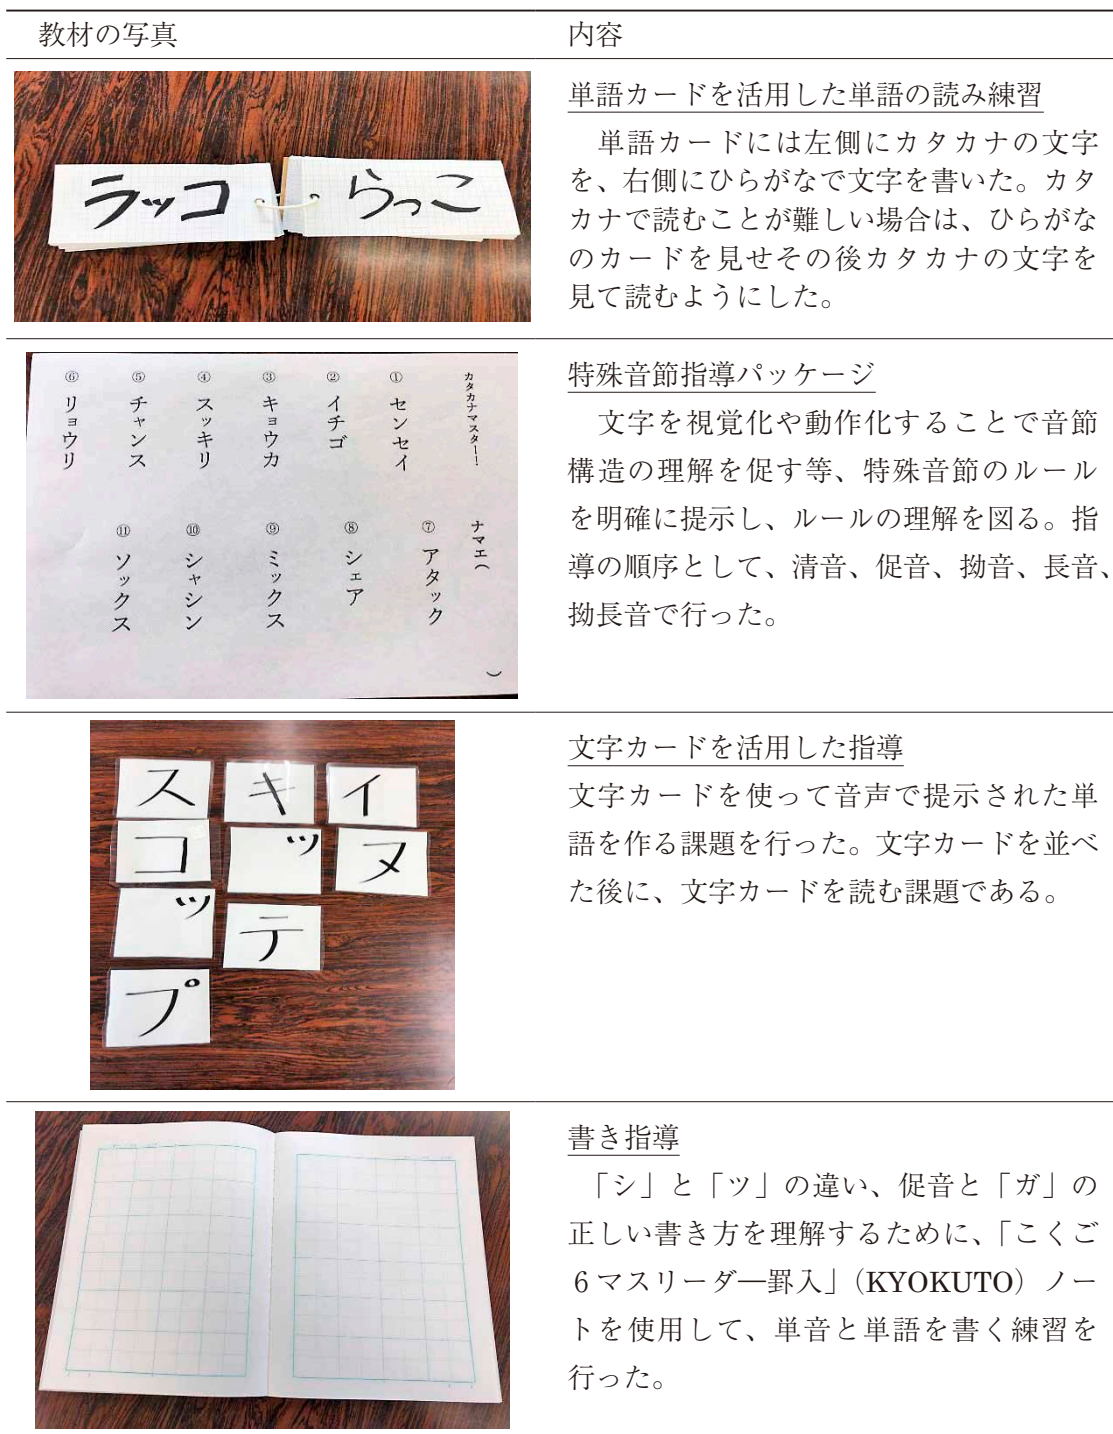 教材の写真
内容
ラッコ
らっこ
単語カードを活用した単語の読み練習
単語カードには左側にカタカナの文字
を、右側にひらがなで文字を書いた。カタ
カナで読むことが難しい場合は、ひらがな
のカードを見せその後カタカナの文字を
見て読むようにした。
カタカナマスター!
ナマエ( )
① センセイ
② イチゴ
③ キョウカ
④ スッキリ
⑤ チャンス
⑥ リョウリ
⑦ アタック
⑧ シェア
⑨ ミックス
⑩ シャシン
⑪ ソックス
特殊音節指導パッケージ
文字を視覚化や動作化することで音節
構造の理解を促す等、特殊音節のルール
を明確に提示し、ルールの理解を図る。指
導の順序として、清音、促音、拗音、長音、
拗長音で行った。
イヌ
キッテ
スコップ
文字カードを活用した指導
文字カードを使って音声で提示された単
語を作る課題を行った。文字カードを並べ
た後に、文字カードを読む課題である。
書き指導
「シ」と「ツ」の違い、促音と「ガ」の
正しい書き方を理解するために、「こくご
6マスリーダ―罫入」（KYOKUTO）ノー
トを使用して、単音と単語を書く練習を
行った。